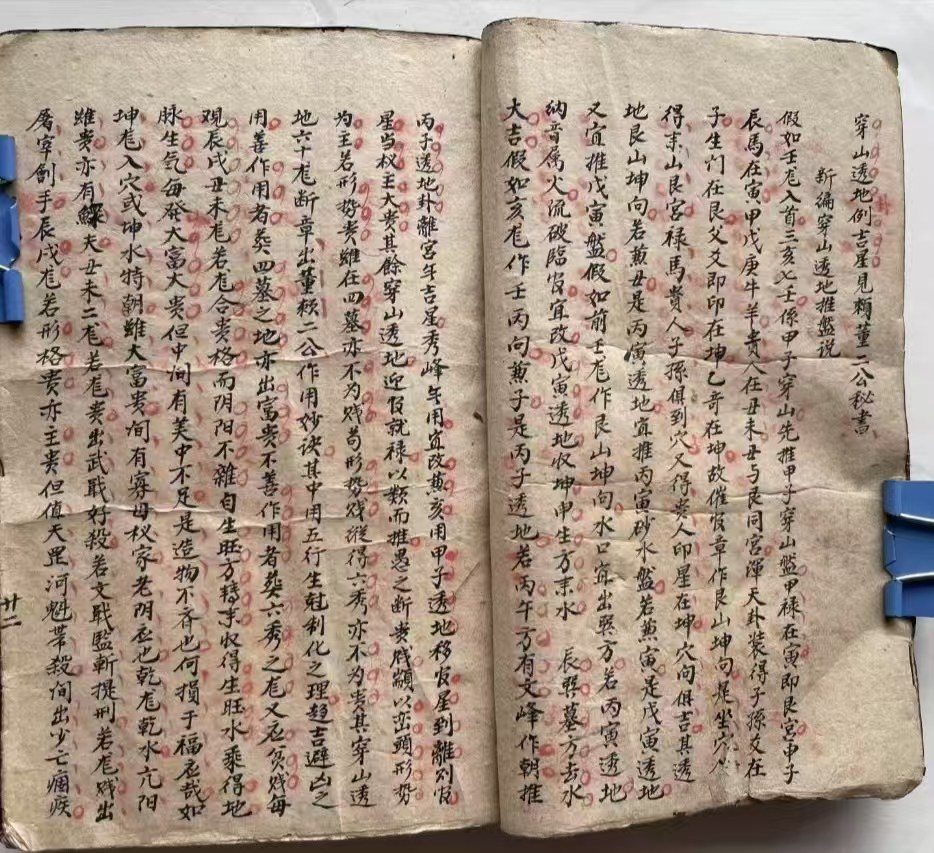 穿山透地例吉星見賴董二公秘書
卦
新編穿山透地推盤說
假如壬龙入首三亥七壬係甲子穿山先推甲子穿山盤甲禄在寅即艮宮甲子
辰馬在寅甲戊庚牛羊贵人在丑未丑与艮同宮渾天卦装得子孫爻在
子生门在艮父爻即印在坤乙奇在坤故催官章作艮山坤向是坐穴
得末山艮宮禄馬貴人子孫俱到穴又得贵人印星在坤穴向俱吉其透
地艮山坤向若兼丑是丙寅透地宜推丙寅砂水盤若兼寅是戊寅透地
又宜推戊寅盤假如前壬龙作艮山坤向水口每出巽方若丙寅透地
纳音属火流破臨官宜改戊寅透地收坤申生方来水辰巽墓方去水
大吉假如亥龙作壬丙向兼子是丙子透地若丙午方有文峰作朝推
丙子透地卦離宮年吉星秀峰年用宜改兼亥用甲子透地移官星到離则官
星当权主大贵其餘穿山透地迎官就禄以類而推愚之断贵贱顓以峦頭形势
为主若形势贵雖在四墓亦不为贱苟形势贱縱得六秀亦不为贵其穿山透
地六十龙断章出董賴二公作用妙诀其中用五行生尅制化之理趋吉避凶之
用善作用者葬四墓之地亦出富贵不善作用者葬六秀之龙又应贫贱每
观辰戌丑未龙若龙合贵格而阴阳不雜自生旺方特来收得生旺水乘得地
脉生气每発大富大贵但中间有美中不足是造物不齐也何損于福应哉如
坤龙入穴或坤水特朝雖大富贵间有寡母权家老阴应也乾龙乾水亢阳
雖贵亦有鰥夫丑未二龙若龙贵出武职好殺若文职監斬提刑若龙贱出
屠宰劊手辰戌龙若形格贵亦主贵但值天罡河魁带殺间出少亡痼疾
廿二